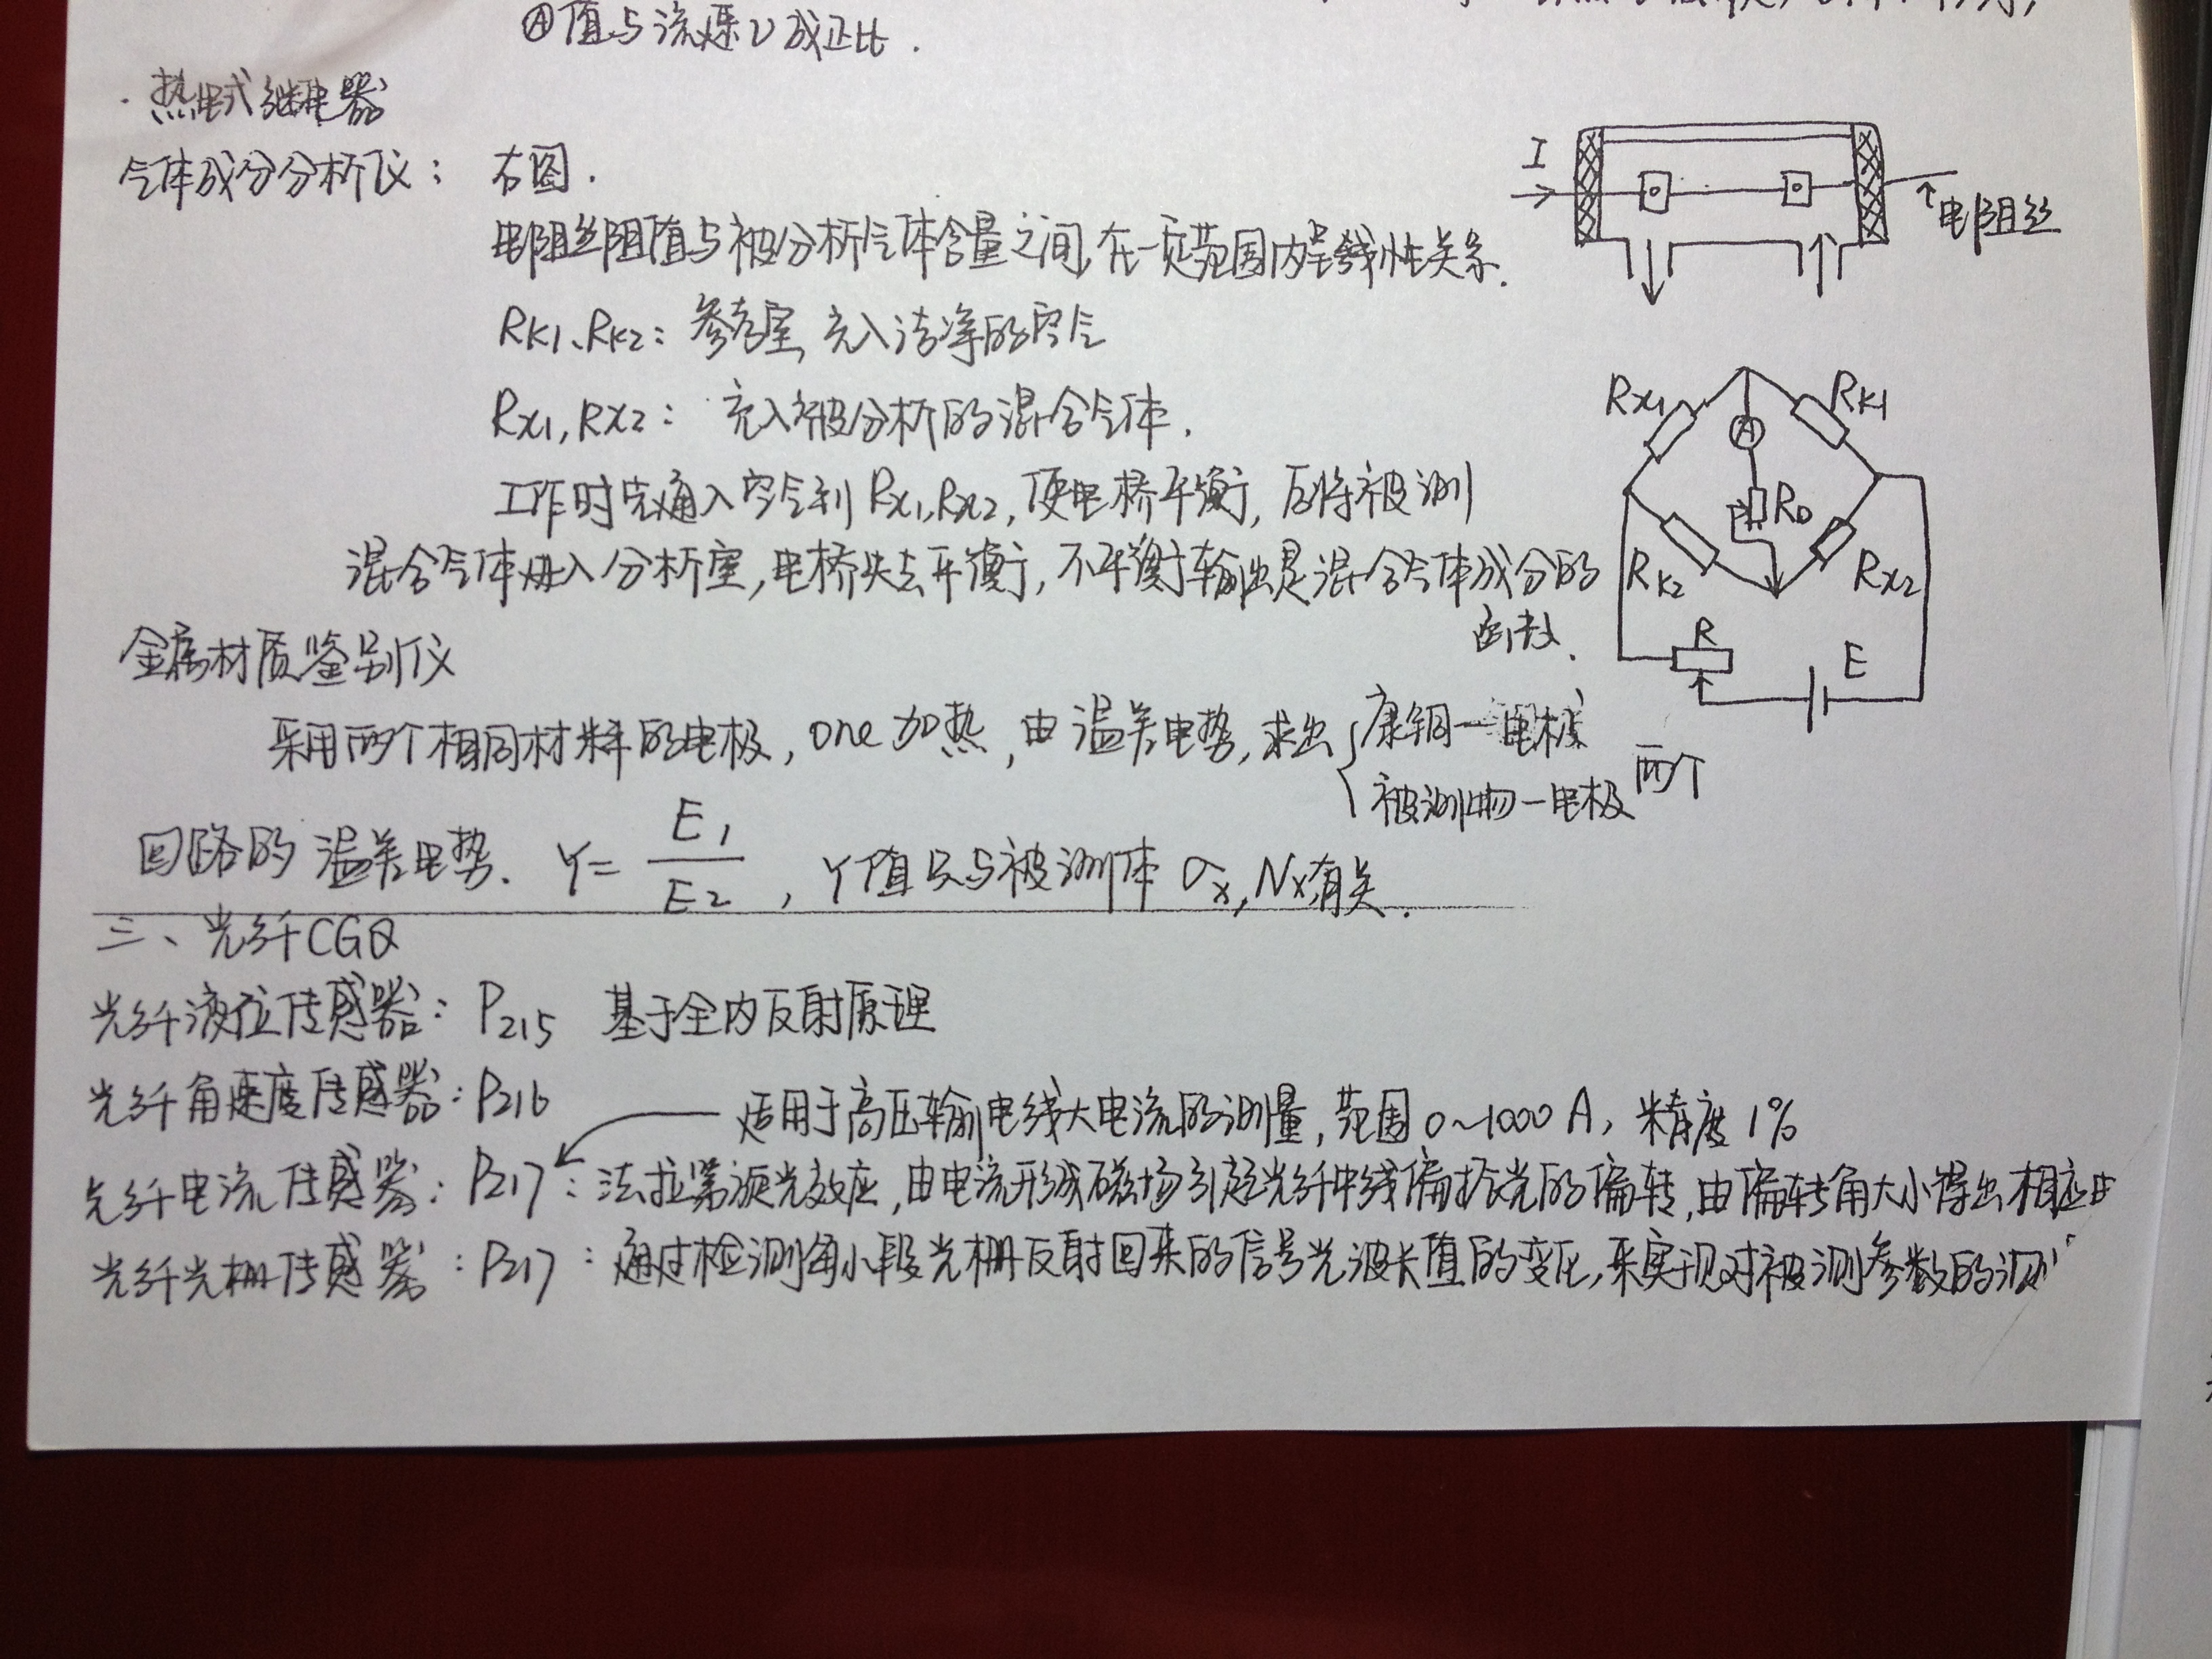 Ⓐ值与流速υ成正比.
· 热电式继电器
气体成分分析仪: 右图.
I
电阻丝
电阻丝阻值与被分析气体含量之间,在一定范围内呈线性关系.
RK1、RK2: 参考室,充入洁净的空气
RX1, RX2: 充入被分析的混合气体.
工作时先通入空气到RX1,RX2,使电桥平衡,后将被测
混合气体通入分析室,电桥失去平衡,不平衡输出是混合气体成分的
函数.
RX1
RK1
A
R0
RK2
RX2
R
E
金属材质鉴别仪
采用两个相同材料的电极, one加热,由温差电势,求出{康铜—电极
被测物—电极 两个
回路的温差电势. Y= E1/E2, Y值只与被测体σx, Nx有关.
三、光纤CGQ
光纤液位传感器: P215 基于全内反射原理
光纤角速度传感器: P216
适用于高压输电线大电流的测量,范围0~1000A,精度1%
光纤电流传感器: P217: 法拉第旋光效应,由电流形成磁场引起光纤中线偏振光的偏转,由偏转角大小得出相应
光纤光栅传感器: P217: 通过检测每小段光栅反射回来的信号光波长值的变化,来实现对被测参数的测